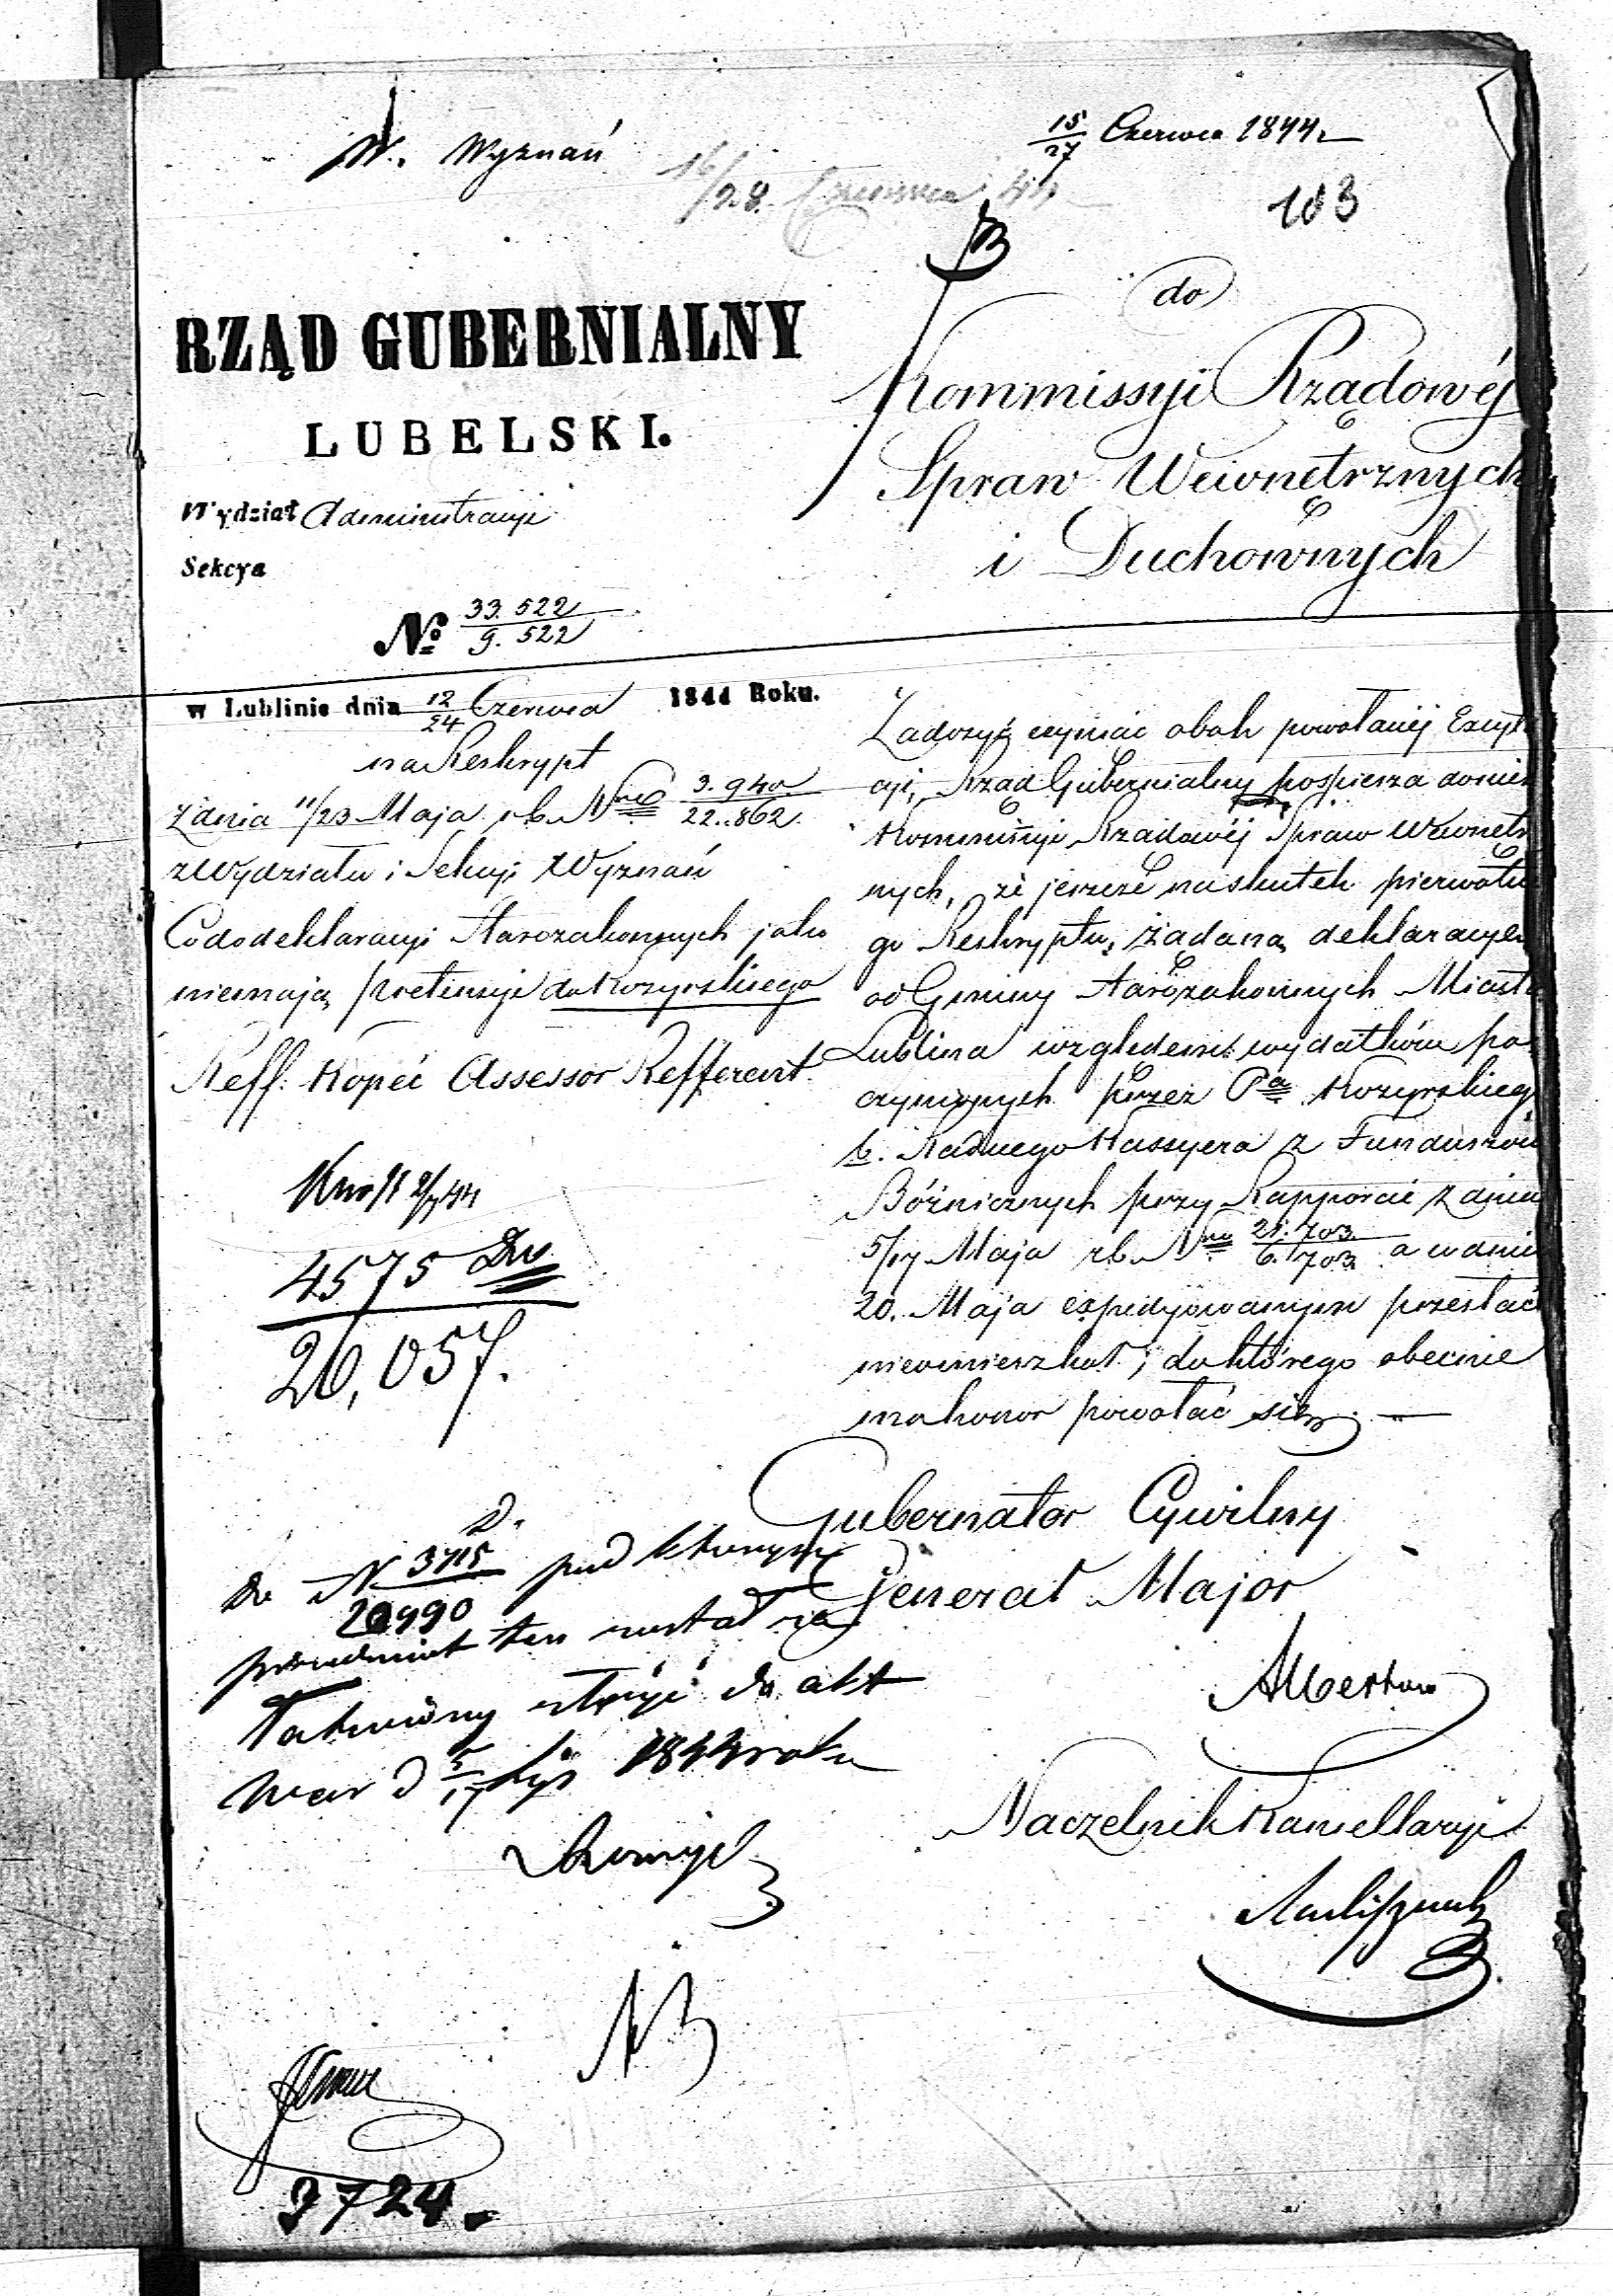 W. Wyznań
15/27 Czerwca 1844
16/28 Czerwca 44
103
do
Kommissyi Rządowéj
Spraw Wewnętrznych
i Duchownych
RZĄD GUBERNIALNY
LUBELSKI.
Wydział Administracyi
Sekcya
№ 33.522/9.522
w Lublinie dnia 12/24 Czerwca 1844 Roku.
na Reskrypt
z dnia 11/23 Maja r.b. Nro 3.940/22.862.
z Wydziału i Sekcyi Wyznań
Co do deklaracyi Starozakonnych jako
niemają pretensyi do Kozyrskiego
Reff. Kopeć Assessor Refferent.
4575
20,057.
Zadosyć czyniąc obok powołanéj Excyta
cyi, Rząd Gubernialny pospiesza donieś
Kommissyi Rządowéj Spraw Wewnętrz
nych, że jeszcze na skutek pierwotne
go Reskryptu, żądaną deklaracyę
od Gminy Starozakonnych Miasta
Lublina względem wydatków po
czynionych przez Pa Kozyrskiego
b. Radnego Kassyera z Funduszów
Bóżnicznych przy Rapporcie z dnia
5/17 Maja r.b. Nro 21.703/6.703. a w dniu
20. Maja expedyowanym przesłać
nieomieszkał, do którego obecnie
ma honor powołać się. —
Gubernator Cywilny
Jenerał Major
Albertow
Naczelnik Kancellaryi
D.
do N 3715/20990 pod którym
przedmiot ten został za
łatwiony złożyć do akt
War d 5/17 Lip 1844 roku
3724.